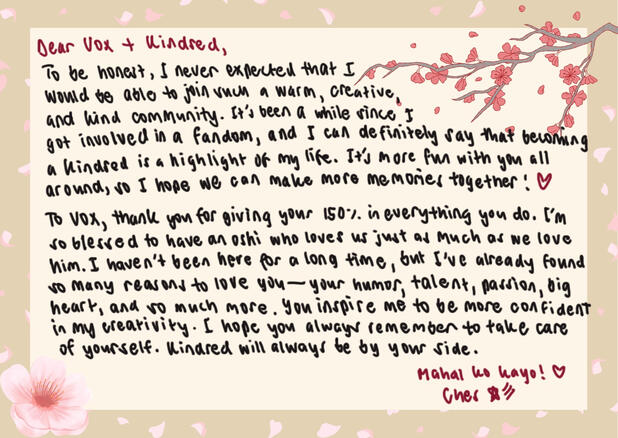 Dear Vox + Kindred,
To be honest, I never expected that I
would be able to join such a warm, creative,
and kind community. It's been a while since I
got involved in a fandom, and I can definitely say that becoming
a Kindred is a highlight of my life. It's more fun with you all
around, so I hope we can make more memories together! ♡
To Vox, thank you for giving your 150% in everything you do. I'm
so blessed to have an oshi who loves us just as much as we love
him. I haven't been here for a long time, but I've already found
so many reasons to love you — your humor, talent, passion, big
heart, and so much more. You inspire me to be more confident
in my creativity. I hope you always remember to take care
of yourself. Kindred will always be by your side.
Mahal ko kayo! ♡
Cher